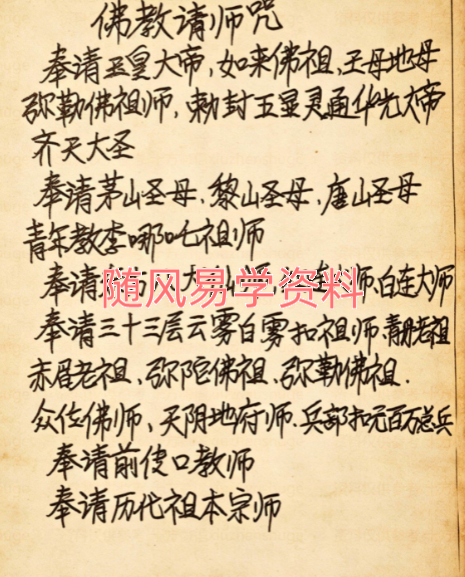 佛教请师咒
奉请玉皇大帝,如来佛祖,王母地母
弥勒佛祖师,勅封五显灵通华光大帝
齐天大圣
奉请茅山圣母,黎山圣母,唐山圣母
青年教李哪吒祖师
奉请 师.白连大师
随风易学资料
奉请三十三层云雾白雾扣祖师.青身老祖
赤眉老祖.弥陀佛祖.弥勒佛祖.
众位佛师,天阴地府师.兵部扣元百万总兵
奉请前传口教师
奉请历代祖本宗师